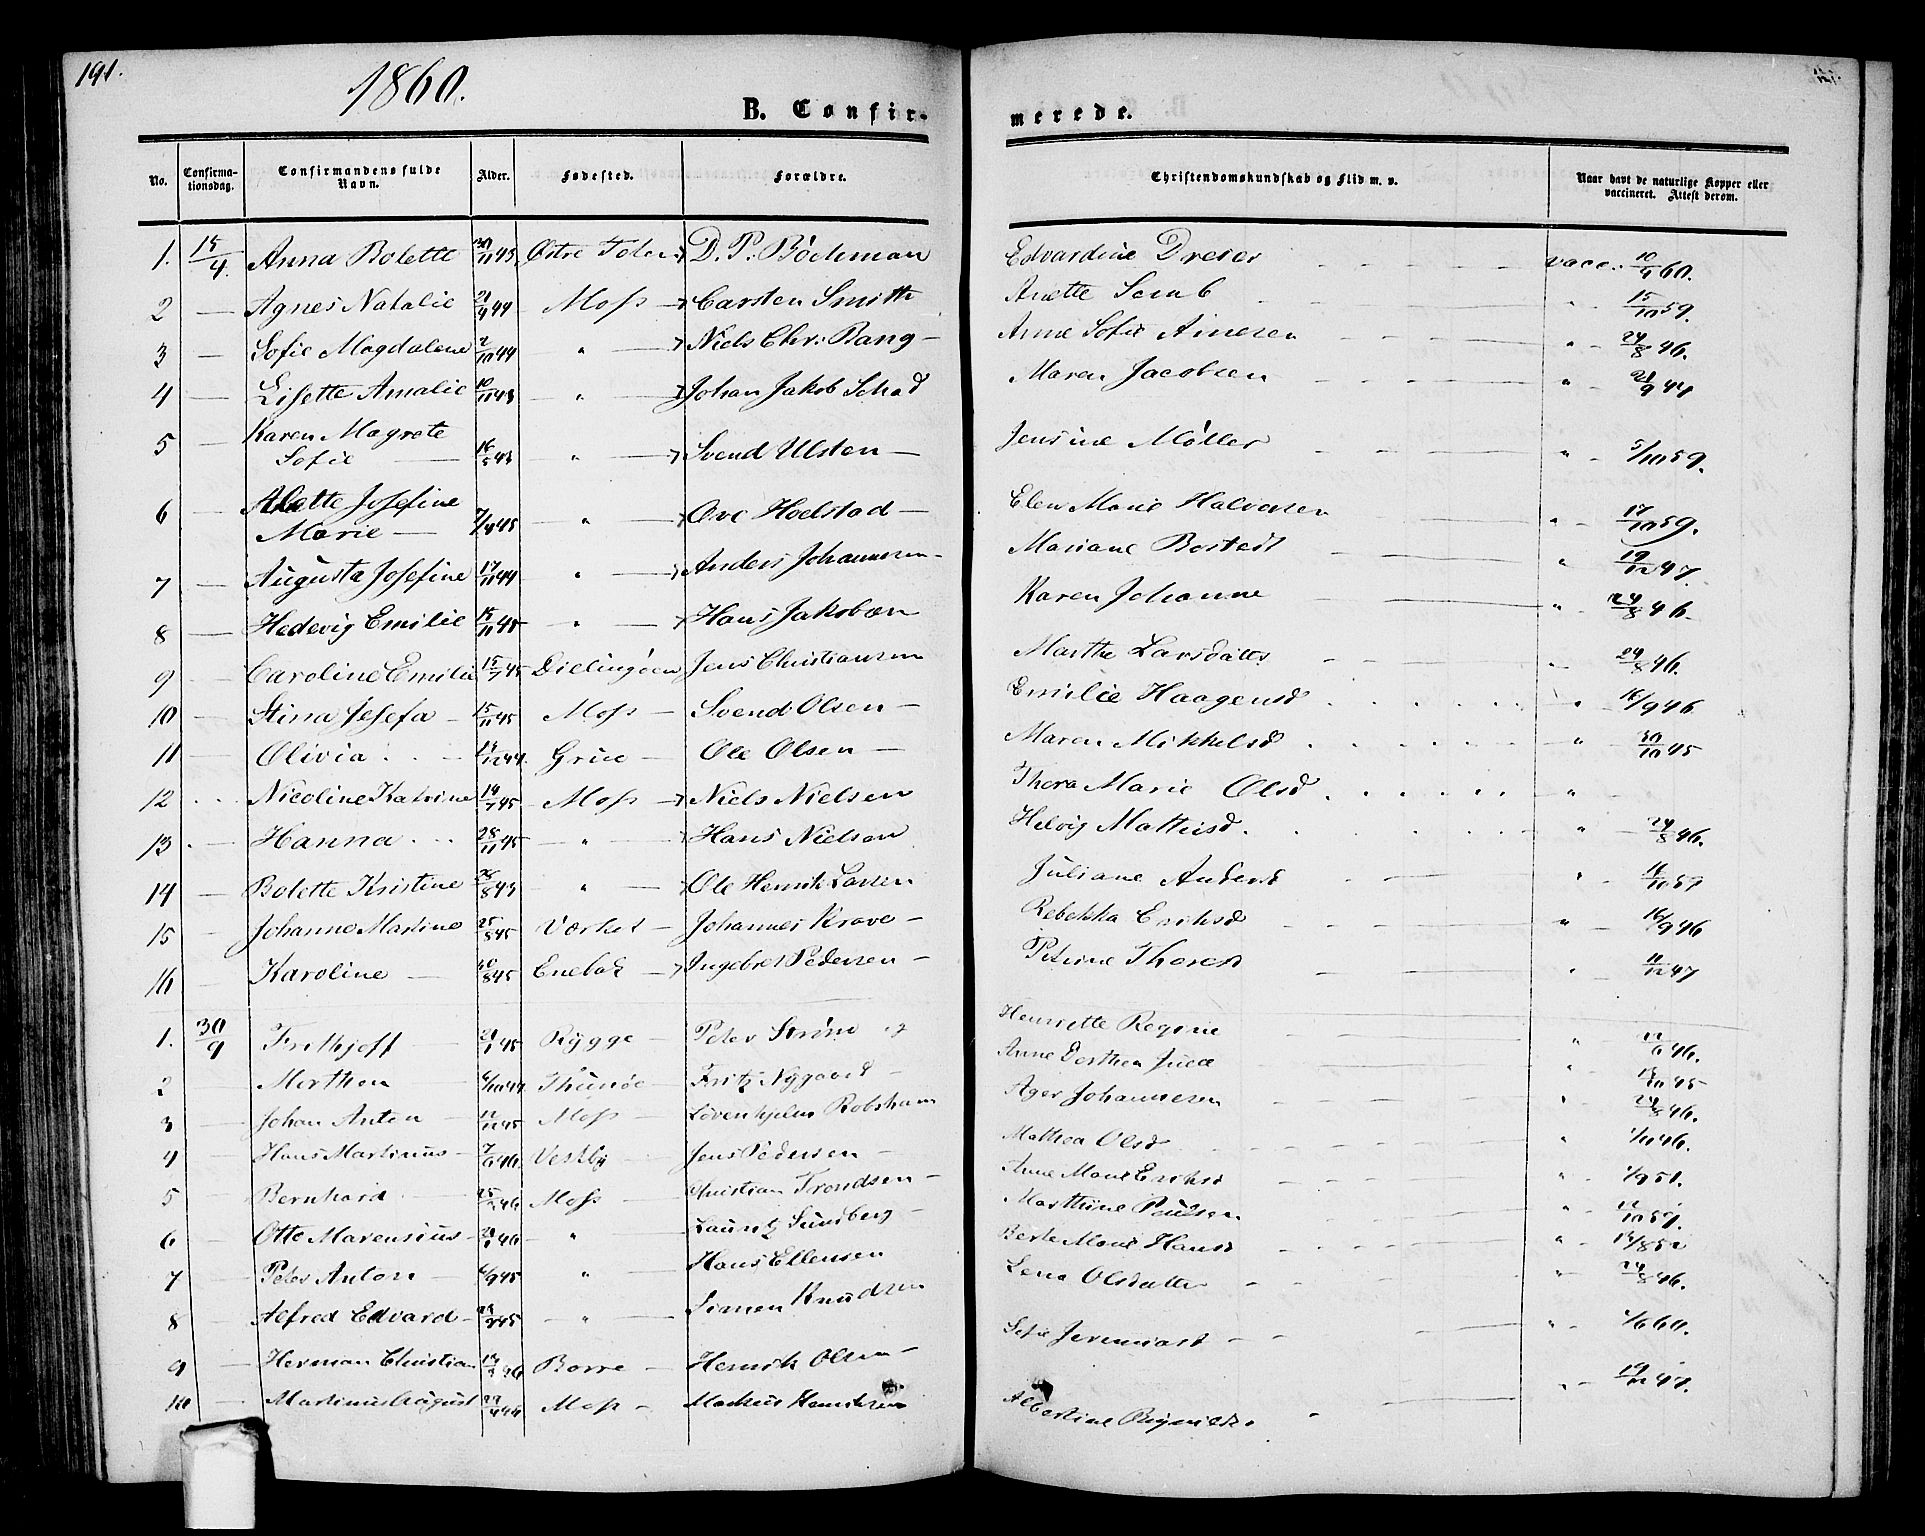 191.
1860.
B. Confir-
merede.
No.
Confirmationsdag.
Confirmandens fulde Navn.
Alder.
Fødested.
Forældre.
Christendomskundskab og Flid m. v.
Naar havt de naturlige Kopper eller vaccineret. Attest derom.
1. 15/4. Anna Bolette 30/11 45. Østre Toten D. P. Bøckman Edvardine Dreier vacc. 10/4 60.
2 — Agnes Natalie 21/4 44 Moss — Carsten Smith Anette Semb " 15/10 59.
3 — Sofie Magdalene 2/10 44 " — Niels Chr. Bang — Anne Sofie Ainesen " - 24/8 46.
4 — Lisette Amalie 10/11 43 " — Johan Jakob Schad Maren Jacobsen " - 21/9 47
5 — Karen Magrete
Sofie — 16/5 43 " — Svend Ulsten — Jensine Møller " - 5/10 59.
6 — Alette Josefine
Marie — 7/4 45 — " — Ove Hoelstad — Elen Marie Halvorsen " - 17/10 59.
7 — Augusta Josefine 17/11 44 " — Anders Johannesen — Mariane Borstedt " - 19/12 47.
8 — Hedevig Emilie 15/11 45 " — Hans Jakobsen Karen Johanne " - 24/8 46.
9 — Caroline Emilie 15/7 45 Dillingøen Jens Christiansen Marthe Larsdatter " 24/8 46.
10 — Stina Josefa — 15/11 45 Moss — Svend Olsen — Emilie Haagensd " - 16/9 46
11 — Olivia 14/12 44. Grue — Ole Olsen — Maren Mikkelsd " 30/10 45
12 Nicoline Katrine 14/7 45 Moss — Niels Nielsen Thora Marie Olsd "
13 — Hanna 28/11 45 — " — Hans Nielsen Helvig Mathisd. " 24/8 46.
14 — Bolette Kristine 28/8 43 " — Ole Henrik Larsen Juliane Andersd " - 11/10 59
15 — Johanne Martine 25/8 45 Værket — Johannes Krave — Rebekka Eriksd " - 16/9 46
16 — Karoline — 30/8 45 Enebak — Ingebret Pedersen — Petrine Thoresd " 11/12 47
1. 30/9 Frithjoff 21/1 45 Rygge — Peter Strøm Henriette Regine " 22/6 46.
2 Morthen 6/10 44 Thunøe — Fritz Nygaard — Anne Dorthea Juel " 13/10 45
3 — Johan Anton — 12/11 45 Moss — Løvenhjelm Robsham Ager Johannesen " 24/8 46.
4 — Hans Martinius — 7/6 46. Vestby Jens Pedersen — Mathea Olsd "
5 — Bernhard 25/2 46 Moss — Christian Trondsen — Anne Marie Eriksd " 1/9 51.
6 — Otto Marensius — 46 " Lauritz Sundberg — Marthine Poulsen "
7 — Peter Anton — 6/9 45 " Hans Ellensen Berte Marie Hansd "
8 — Alfred Edvard — 45 — " Simen Knudsen Lena Olsdatter — " 24/8 46.
9 — Herman Christian 46 Borre — Henrik Olsen — Sofie Jeremiasd " - 60.
10 — Martinus August 44 Moss — Markus Henriksen Albertine " - 19/12 47.